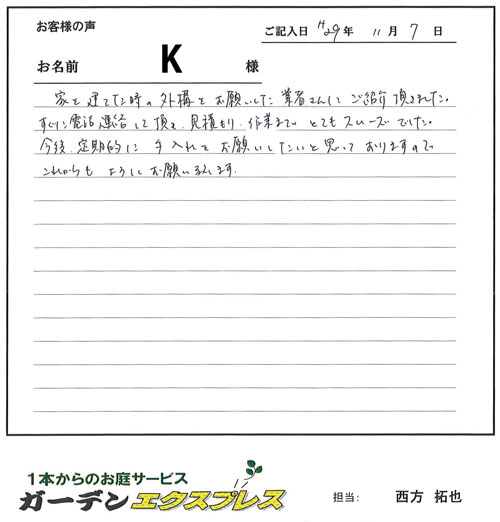 お客様の声
ご記入日 H29年 11月 7日
お名前 K 様
家を建てた時の外構をお願いした業者さんにご紹介頂きました。
すぐに電話連絡して頂き、見積もり、作業までとてもスムーズでした。
今後、定期的に手入れをお願いしたいと思っておりますので
これからもよろしくお願いします。
1本からのお庭サービス
ガーデンエクスプレス
担当: 西方 拓也